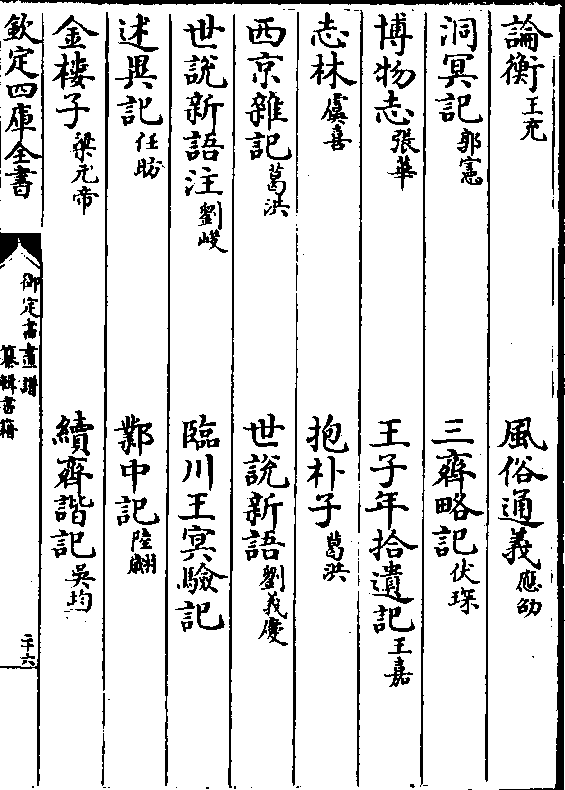 論衡王充　風俗通義應劭
洞冥記郭憲　三齊略記伏琛
博物志張華　王子年拾遺記王嘉
志林虞喜　抱朴子葛洪
西京雜記葛洪　世說新語劉義慶
世說新語注劉峻　臨川王冥驗記
述異記任昉　鄴中記陸翽
金樓子梁元帝　續齊諧記吳均
欽定四庫全書　御定書畫譜　纂輯書籍　二十六